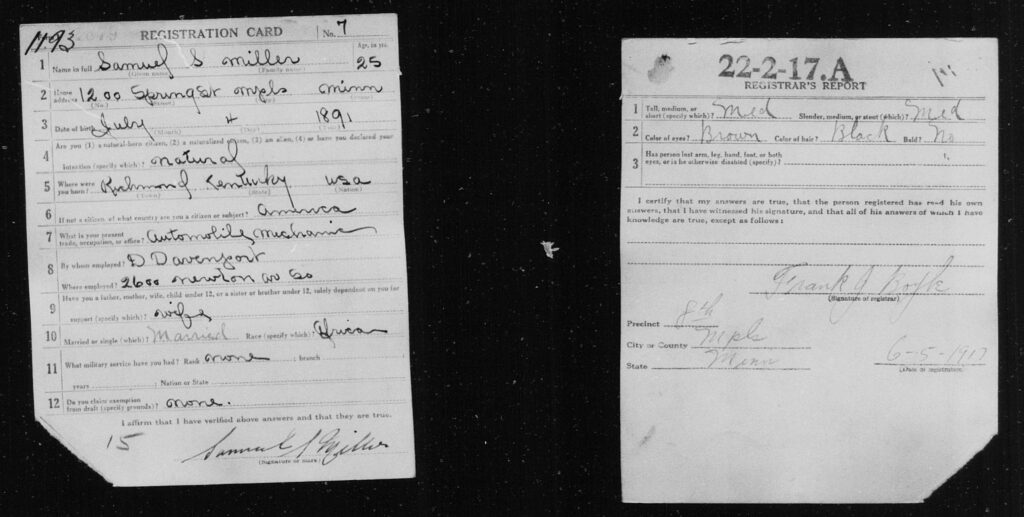 1193
REGISTRATION CARD No. 7
1 Name in full Samuel S Miller Age, in yrs. 25
(Given name) (Family name)
2 Home address 1200 Spring St Mpls Minn
(No.) (Street)
3 Date of birth July 4 1891
(Month) (Day)
4 Are you (1) a natural-born citizen, (2) a naturalized citizen, (3) an alien, (4) or have you declared your
intention (specify which)? natural
5 Where were you born? Richmond Kentucky USA
(Town) (State) (Nation)
6 If not a citizen, of what country are you a citizen or subject? America
7 What is your present trade, occupation, or office? Automobile Mechanic
8 By whom employed? D Davenport
Where employed? 2600 Newton av So
9 Have you a father, mother, wife, child under 12, or a sister or brother under 12, solely dependent on you for
support (specify which)? wife
10 Married or single (which)? Married Race (specify which)? Africa
11 What military service have you had? Rank none ; branch
years ; Nation or State
12 Do you claim exemption from draft (specify grounds)? none.
I affirm that I have verified above answers and that they are true.
15
Samuel S Miller
(Signature or mark)
22-2-17.A
REGISTRAR'S REPORT
1 Tall, medium, or short (specify which)? Med Slender, medium, or stout (which)? Med
2 Color of eyes? Brown Color of hair? Black Bald? No
3 Has person lost arm, leg, hand, foot, or both
eyes, or is he otherwise disabled (specify)?
I certify that my answers are true, that the person registered has read his own
answers, that I have witnessed his signature, and that all of his answers of which I have
knowledge are true, except as follows:
Frank J
(Signature of registrar)
Precinct 8th
City or County Mpls
State Minn
6-5-1917
(Date of registration)